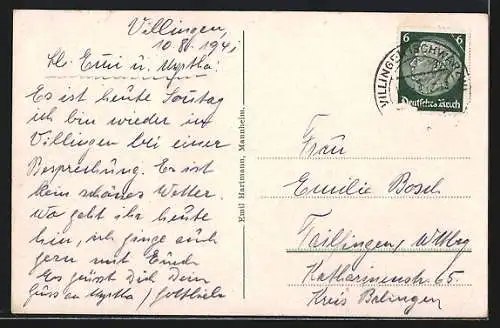 Villingen,
10.8. 1941
Lb. Emi u. Myrtha!
Es ist heute Sonntag
ich bin wieder in
Villingen bei einer
Besprechung. Es ist
kein schönes Wetter.
Wo geht ihr heute
hin, ich ginge auch
gern mit Euch
Es grüsst Dich Dein
Gruss an Myrtha / Gottlieb
Emil Hartmann, Mannheim.
6 6
Deutsches Reich
VILLINGEN (SCHWARZW)
Frau
Emilie Bosch
Tailfingen, Wttbg
Katharinenstr. 65
Kreis Balingen